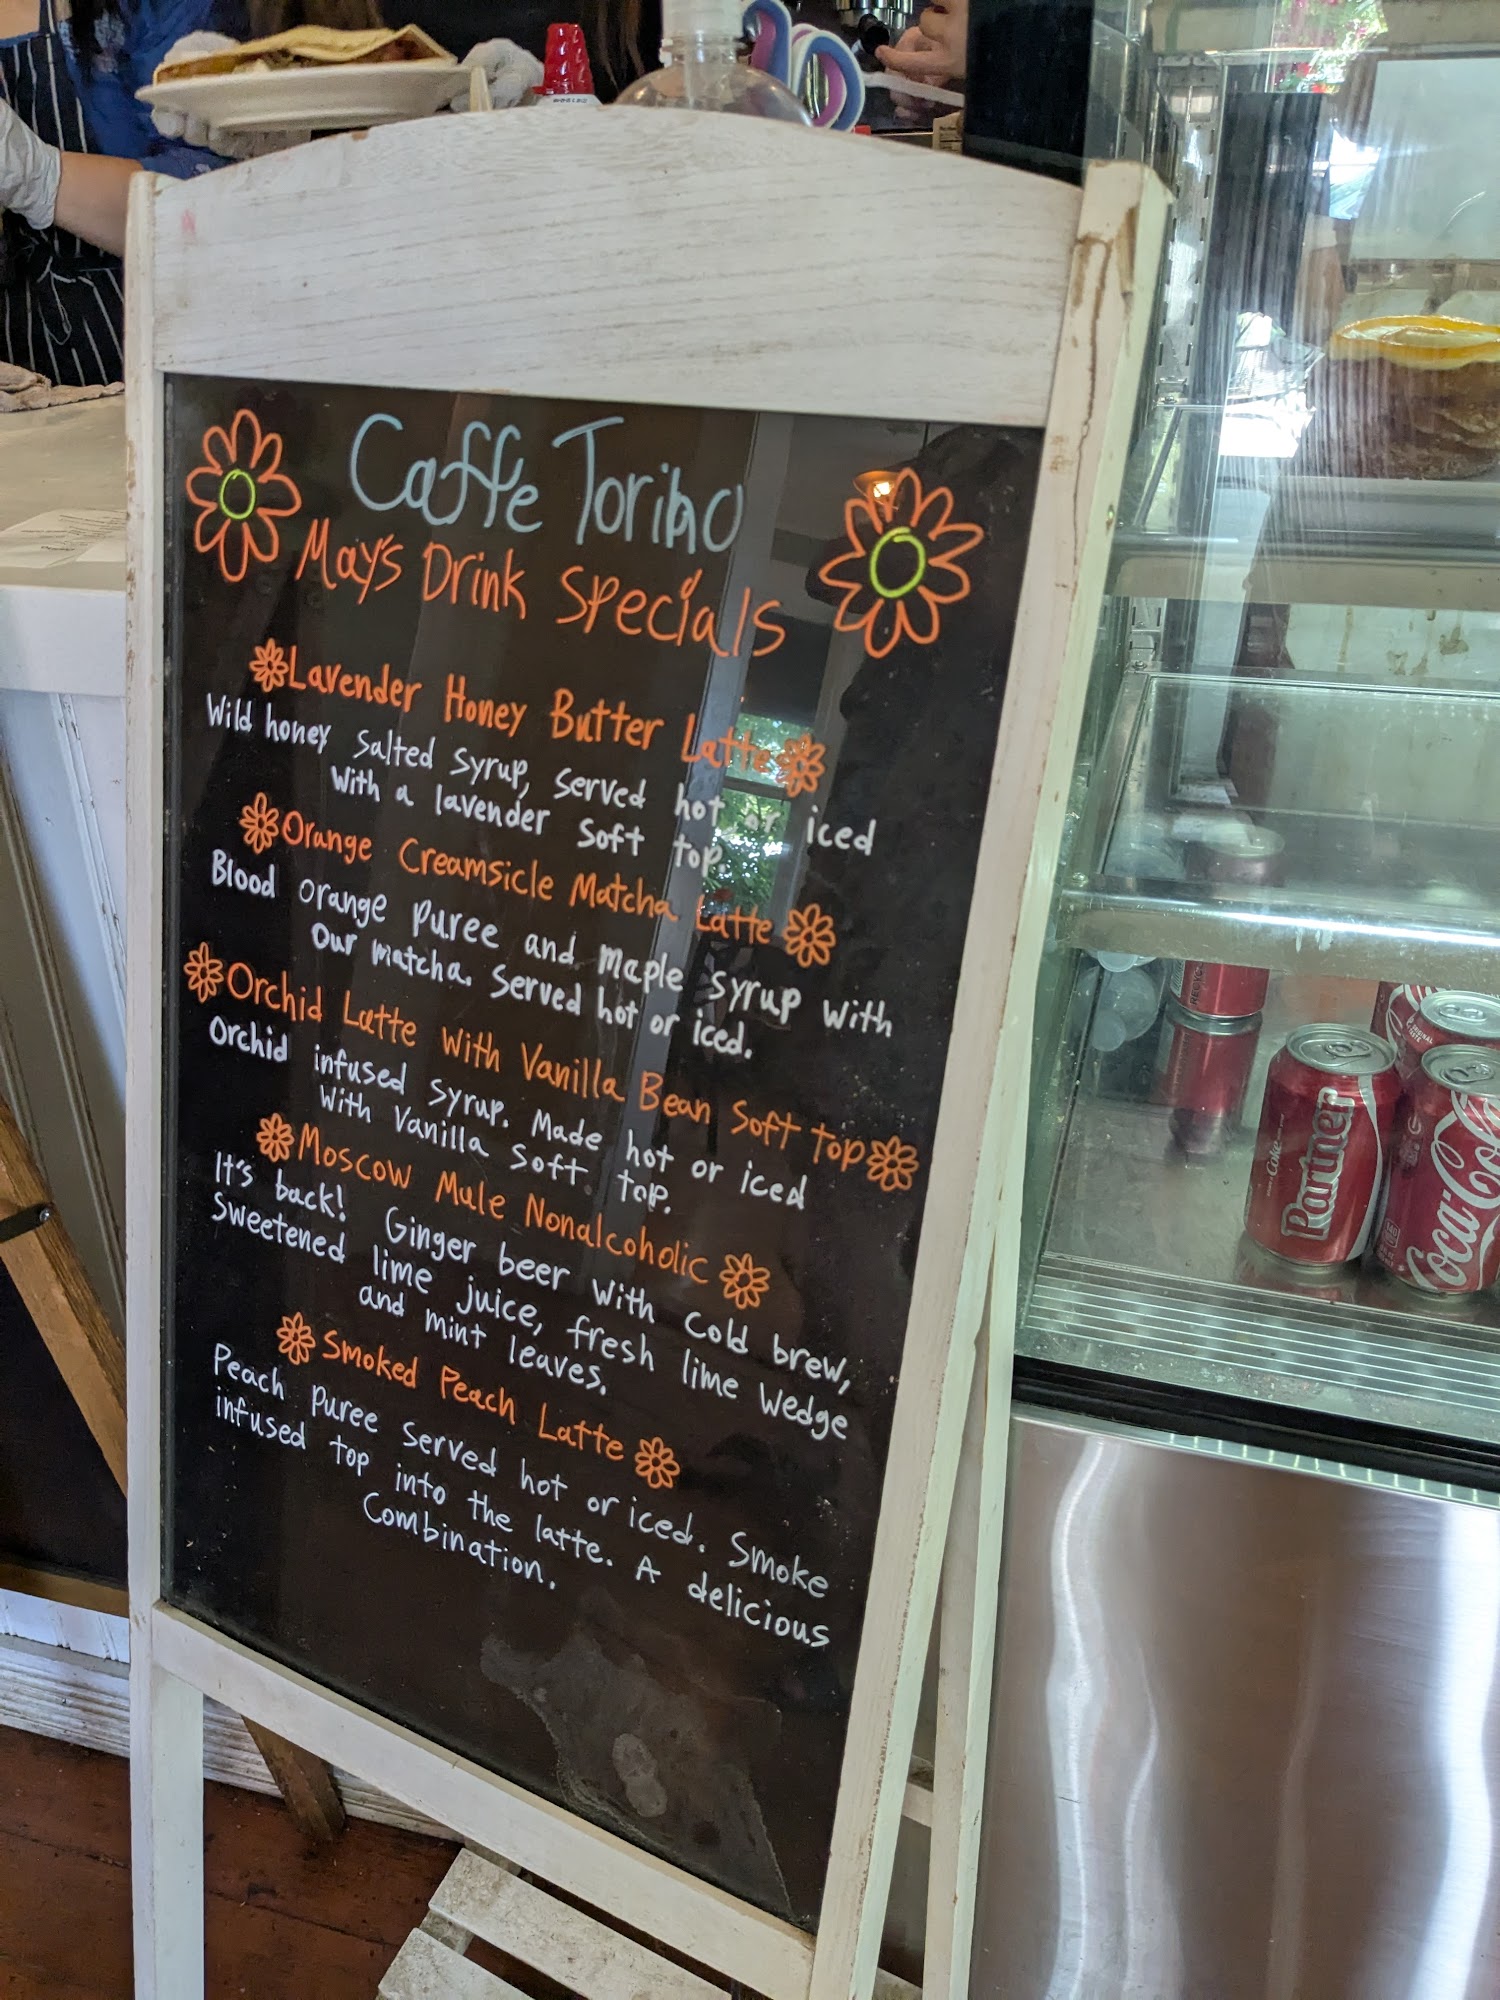 Caffe Torino
May's Drink Specials
Lavender Honey Butter Latte
Wild honey salted syrup, served hot or iced
with a lavender soft top.
Orange Creamsicle Matcha Latte
Blood orange puree and maple syrup with
our matcha. Served hot or iced.
Orchid Latte with Vanilla Bean Soft Top
Orchid infused syrup. Made hot or iced
with Vanilla soft top.
Moscow Mule Nonalcoholic
It's back! Ginger beer with cold brew,
sweetened lime juice, fresh lime wedge
and mint leaves.
Smoked Peach Latte
Peach puree served hot or iced. Smoke
infused top into the latte. A delicious
Combination.
Partner
Coca-Cola